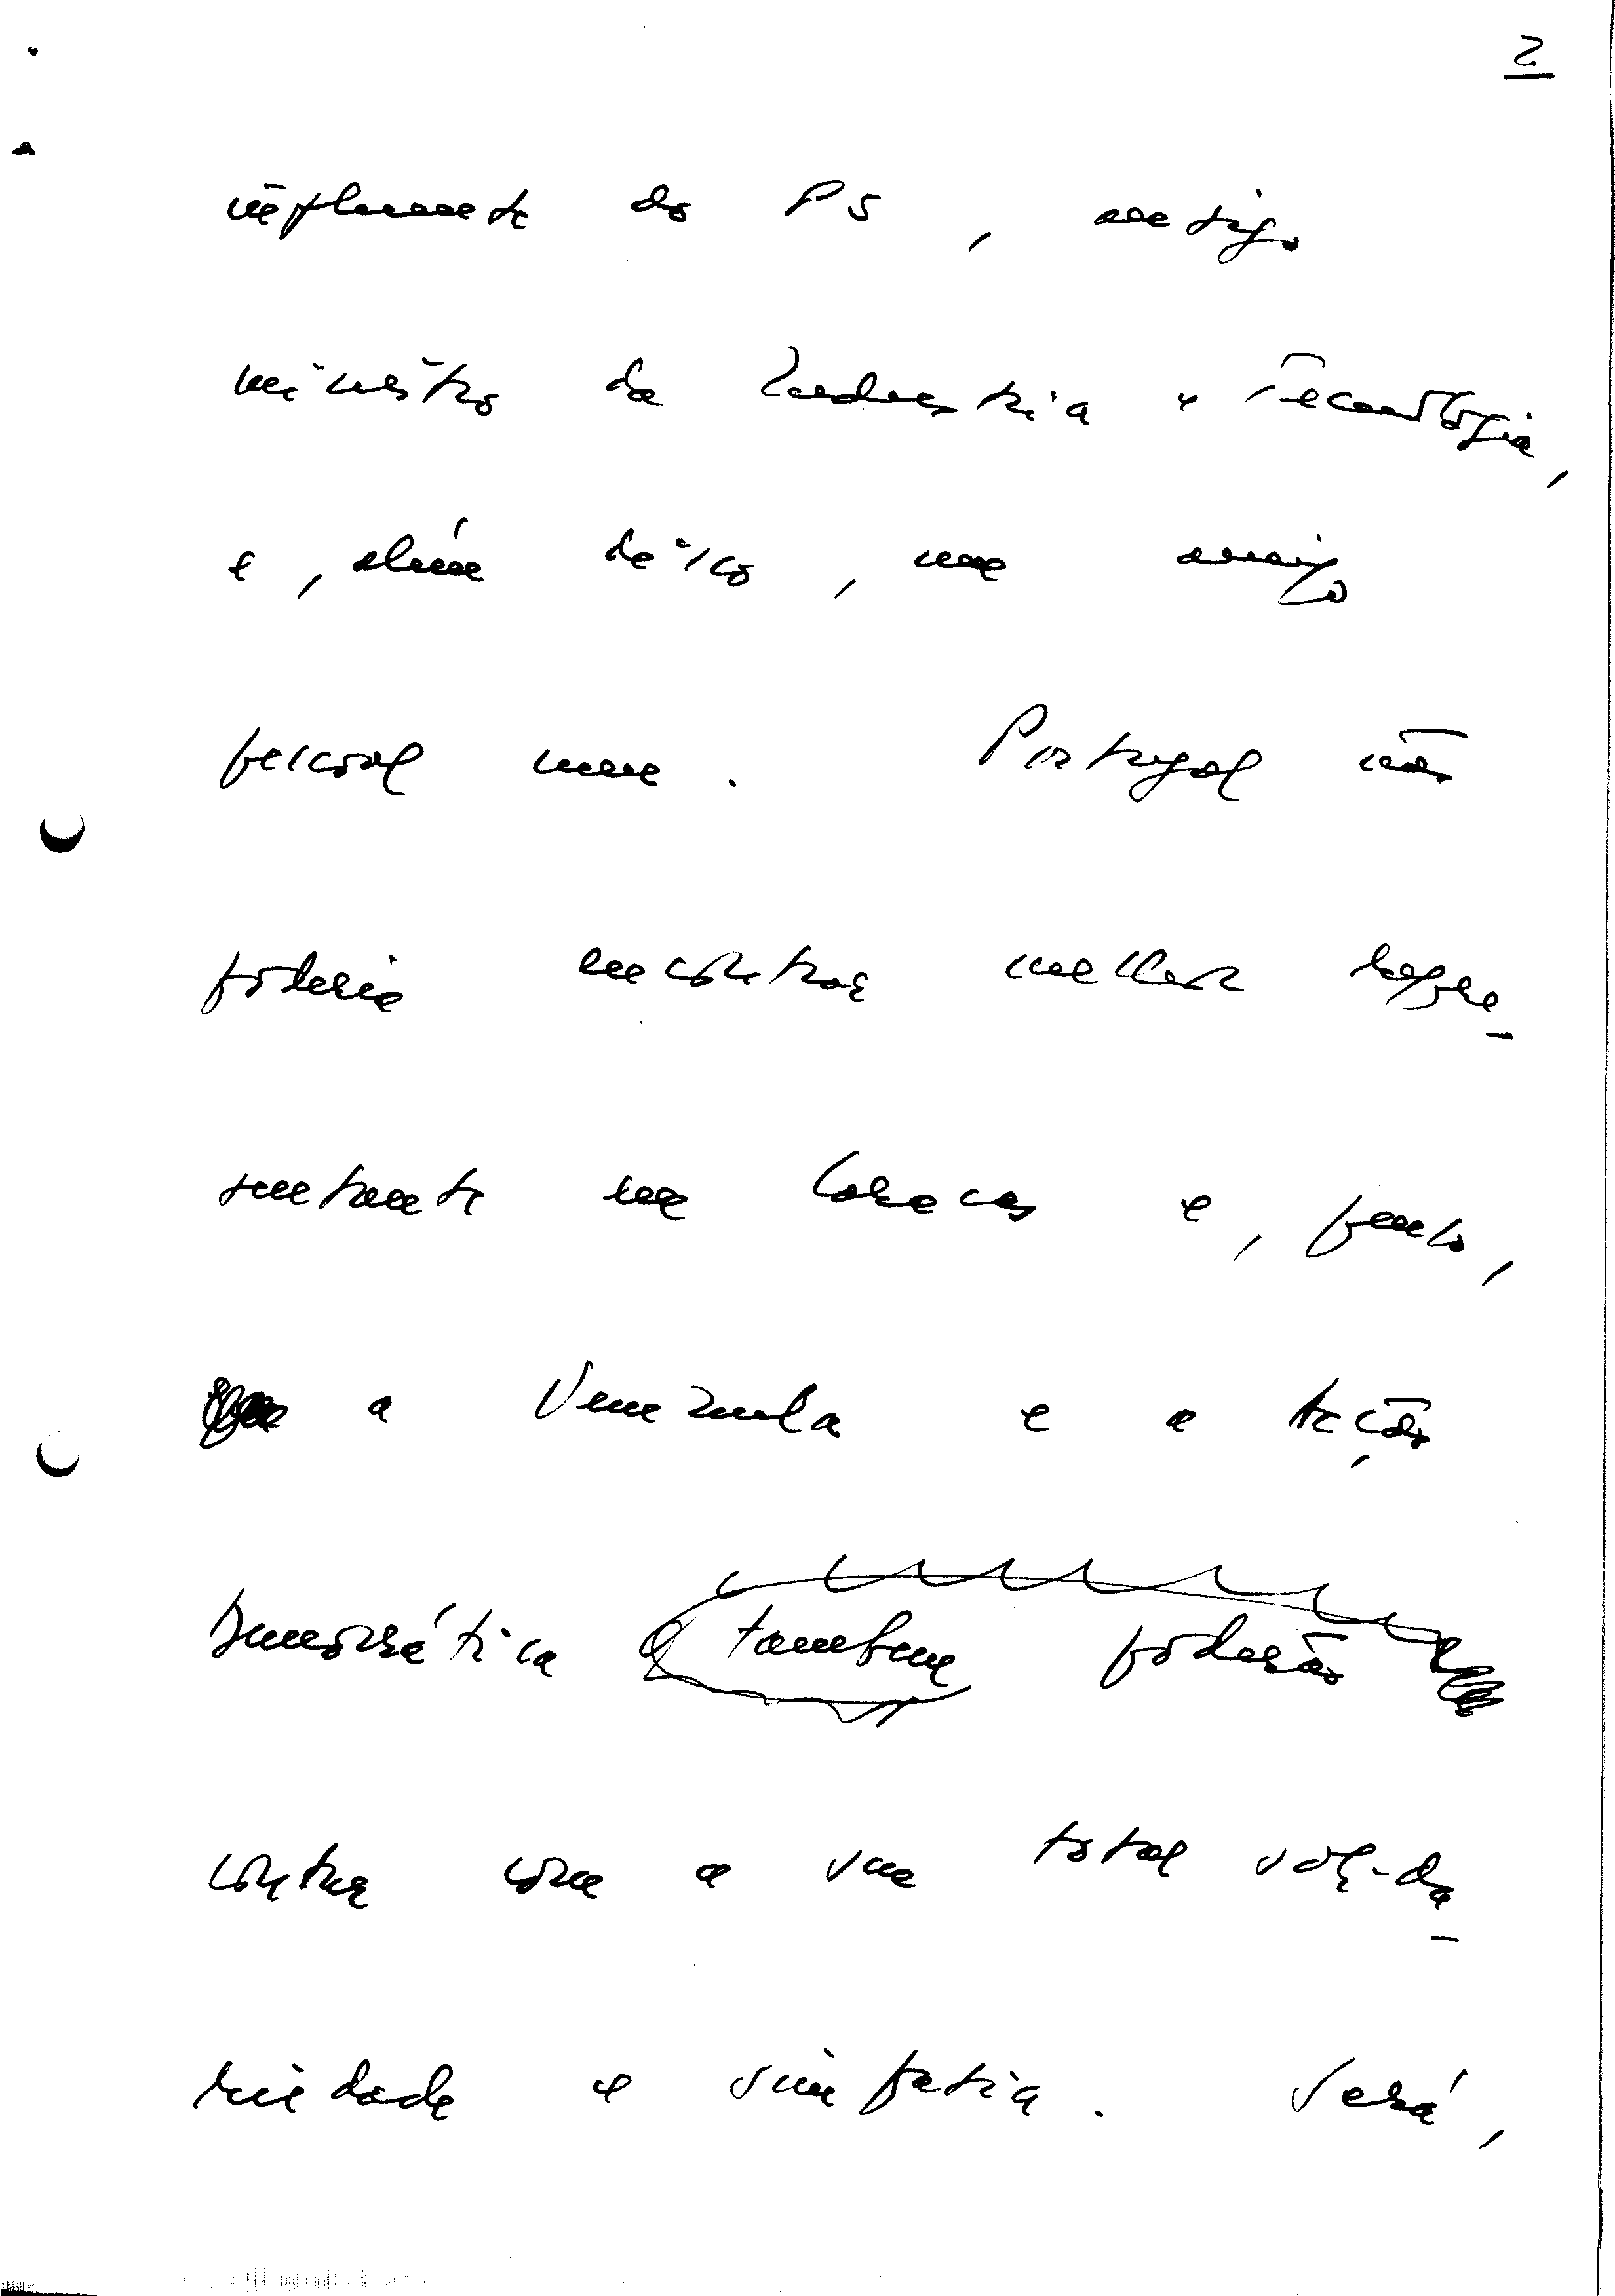 2
influente do PS, antigo
ministro da Industria e Tecnologia,
e, além disso, um amigo
pessoal meu. Portugal não
poderia encontrar melhor repre-
sentante em Caracas e, penso,
a Venezuela e a Acção
Democrática tambem poderão
contar com a sua total solida-
riedade e simpatia. Será,